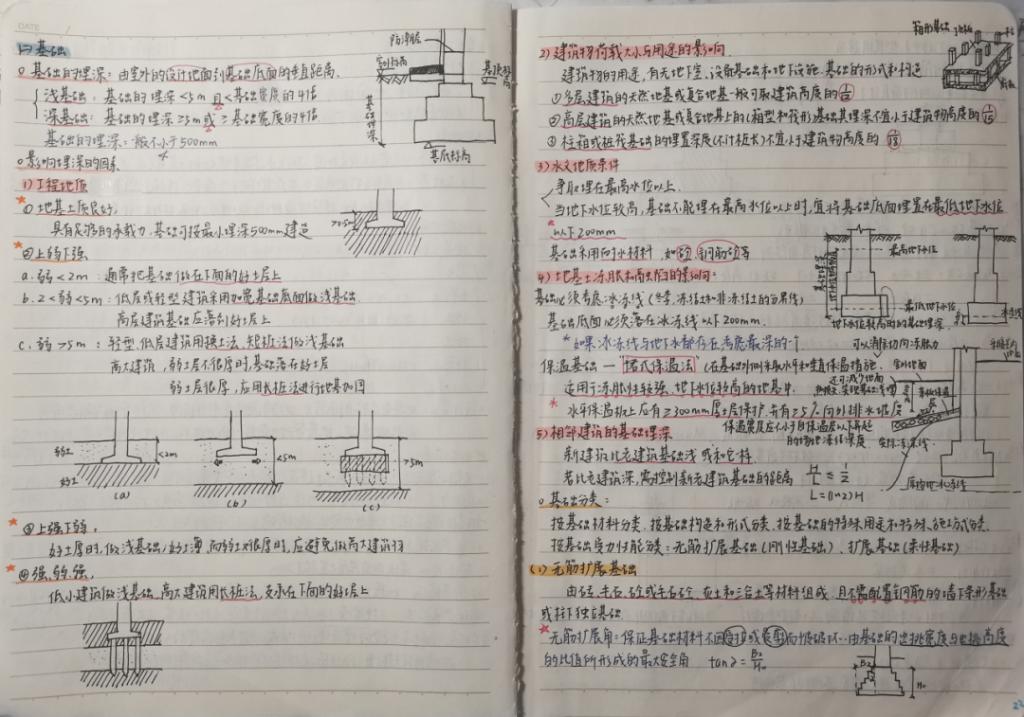 DATE
(一)基础
○ 基础的埋深：由室外的设计地面到基础底面的垂直距离.
浅基础：基础的埋深<5m 且<基础宽度的4倍
深基础：基础的埋深≥5m或≥基础宽度的4倍
基础的埋深一般不小于500mm
防潮层
基础埋深
基底标高
○影响埋深的因素
1) 工程地质
① 地基土质良好,
具有足够的承载力,基础可按最小埋深500mm建造
>0.5m
②上弱下强
a. 弱<2m：通常把基础做在下面的好土层上
b. 2<弱<5m：低层或轻型建筑采用加宽基础底面做浅基础.
高层建筑基础应落到好土层上
c. 弱>5m：轻型、低层建筑用换土法、短桩法做浅基础
高大建筑，弱土层不很厚时,基础落在好土层
弱土层很厚，应用长桩法进行地基加固
弱土
好土
<2m
(a)
<5m
(b)
>5m
(c)
③上强下弱,
好土厚时,做浅基础;好土薄,而弱土很厚时,应避免做高大建筑物
④强、弱、强,
低小建筑做浅基础,高大建筑用长桩法,支承在下面的好层上
2) 建筑物荷载大小与用途的影响
箱形基础
建筑物的用途，有无地下室、设备基础和地下设施、基础的形式和构造
①多层建筑的天然地基或复合地基一般可取建筑高度的1/10
②高层建筑的天然地基或复合地基上的(箱型和筏形)基础其埋深不宜小于建筑物高度的1/15
③桩箱或桩筏基础的埋置深度(不计桩长)不宜小于建筑物高度的1/18
3) 水文地质条件
争取埋在最高水位以上.
当地下水位较高,基础不能埋在最高水位以上时,宜将基础底面埋置在最低地下水位
以下200mm
基础采用耐水材料 如砼、钢筋砼等
最高地下水位
最低地下水位
地下水位较高时的基础埋深
冰冻线
4) 地基土冻胀和高出陷的影响：
基础必须考虑:冰冻线(冬季,冻结土和非冻结土的分界线)
基础底面必须落在冰冻线以下200mm.
*如果冰冻线与地下水都存在,考虑最深的一个
可以消除切向冻胀力
保温基础 — "裙式保温法"(在基础外侧采取水平和垂直保温措施.
适用于冻胀性较强、地下水位较高的地基中.
还可减少地面
室外地面
*水平保温板上应有≥300mm厚土层保护,并有≥5%向外排水坡度
5) 相邻建筑的基础埋深
新建筑比元建筑基础浅 或和它持
若比元建筑深,需控制新元建筑基础的距离 H/L ≤ 1/2
L=(1~2)H
○ 基础分类：
按基础材料分类、按基础构造和形式分类、按基础的特殊用途和特殊施工方式分类、
按基础受力性能分类：无筋扩展基础(刚性基础)、扩展基础(柔性基础)
(1) 无筋扩展基础
由砖、毛石、砼或毛石砼、灰土和三合土等材料组成,且不需配置钢筋的墙下条形基础
或柱下独立基础
*无筋扩展角：保证基础材料不因受拉或受剪而被破坏,由基础的出挑宽度与出挑高度
的比值所形成的最大安全角 tanα= B₂/H₀
B₂
H₀